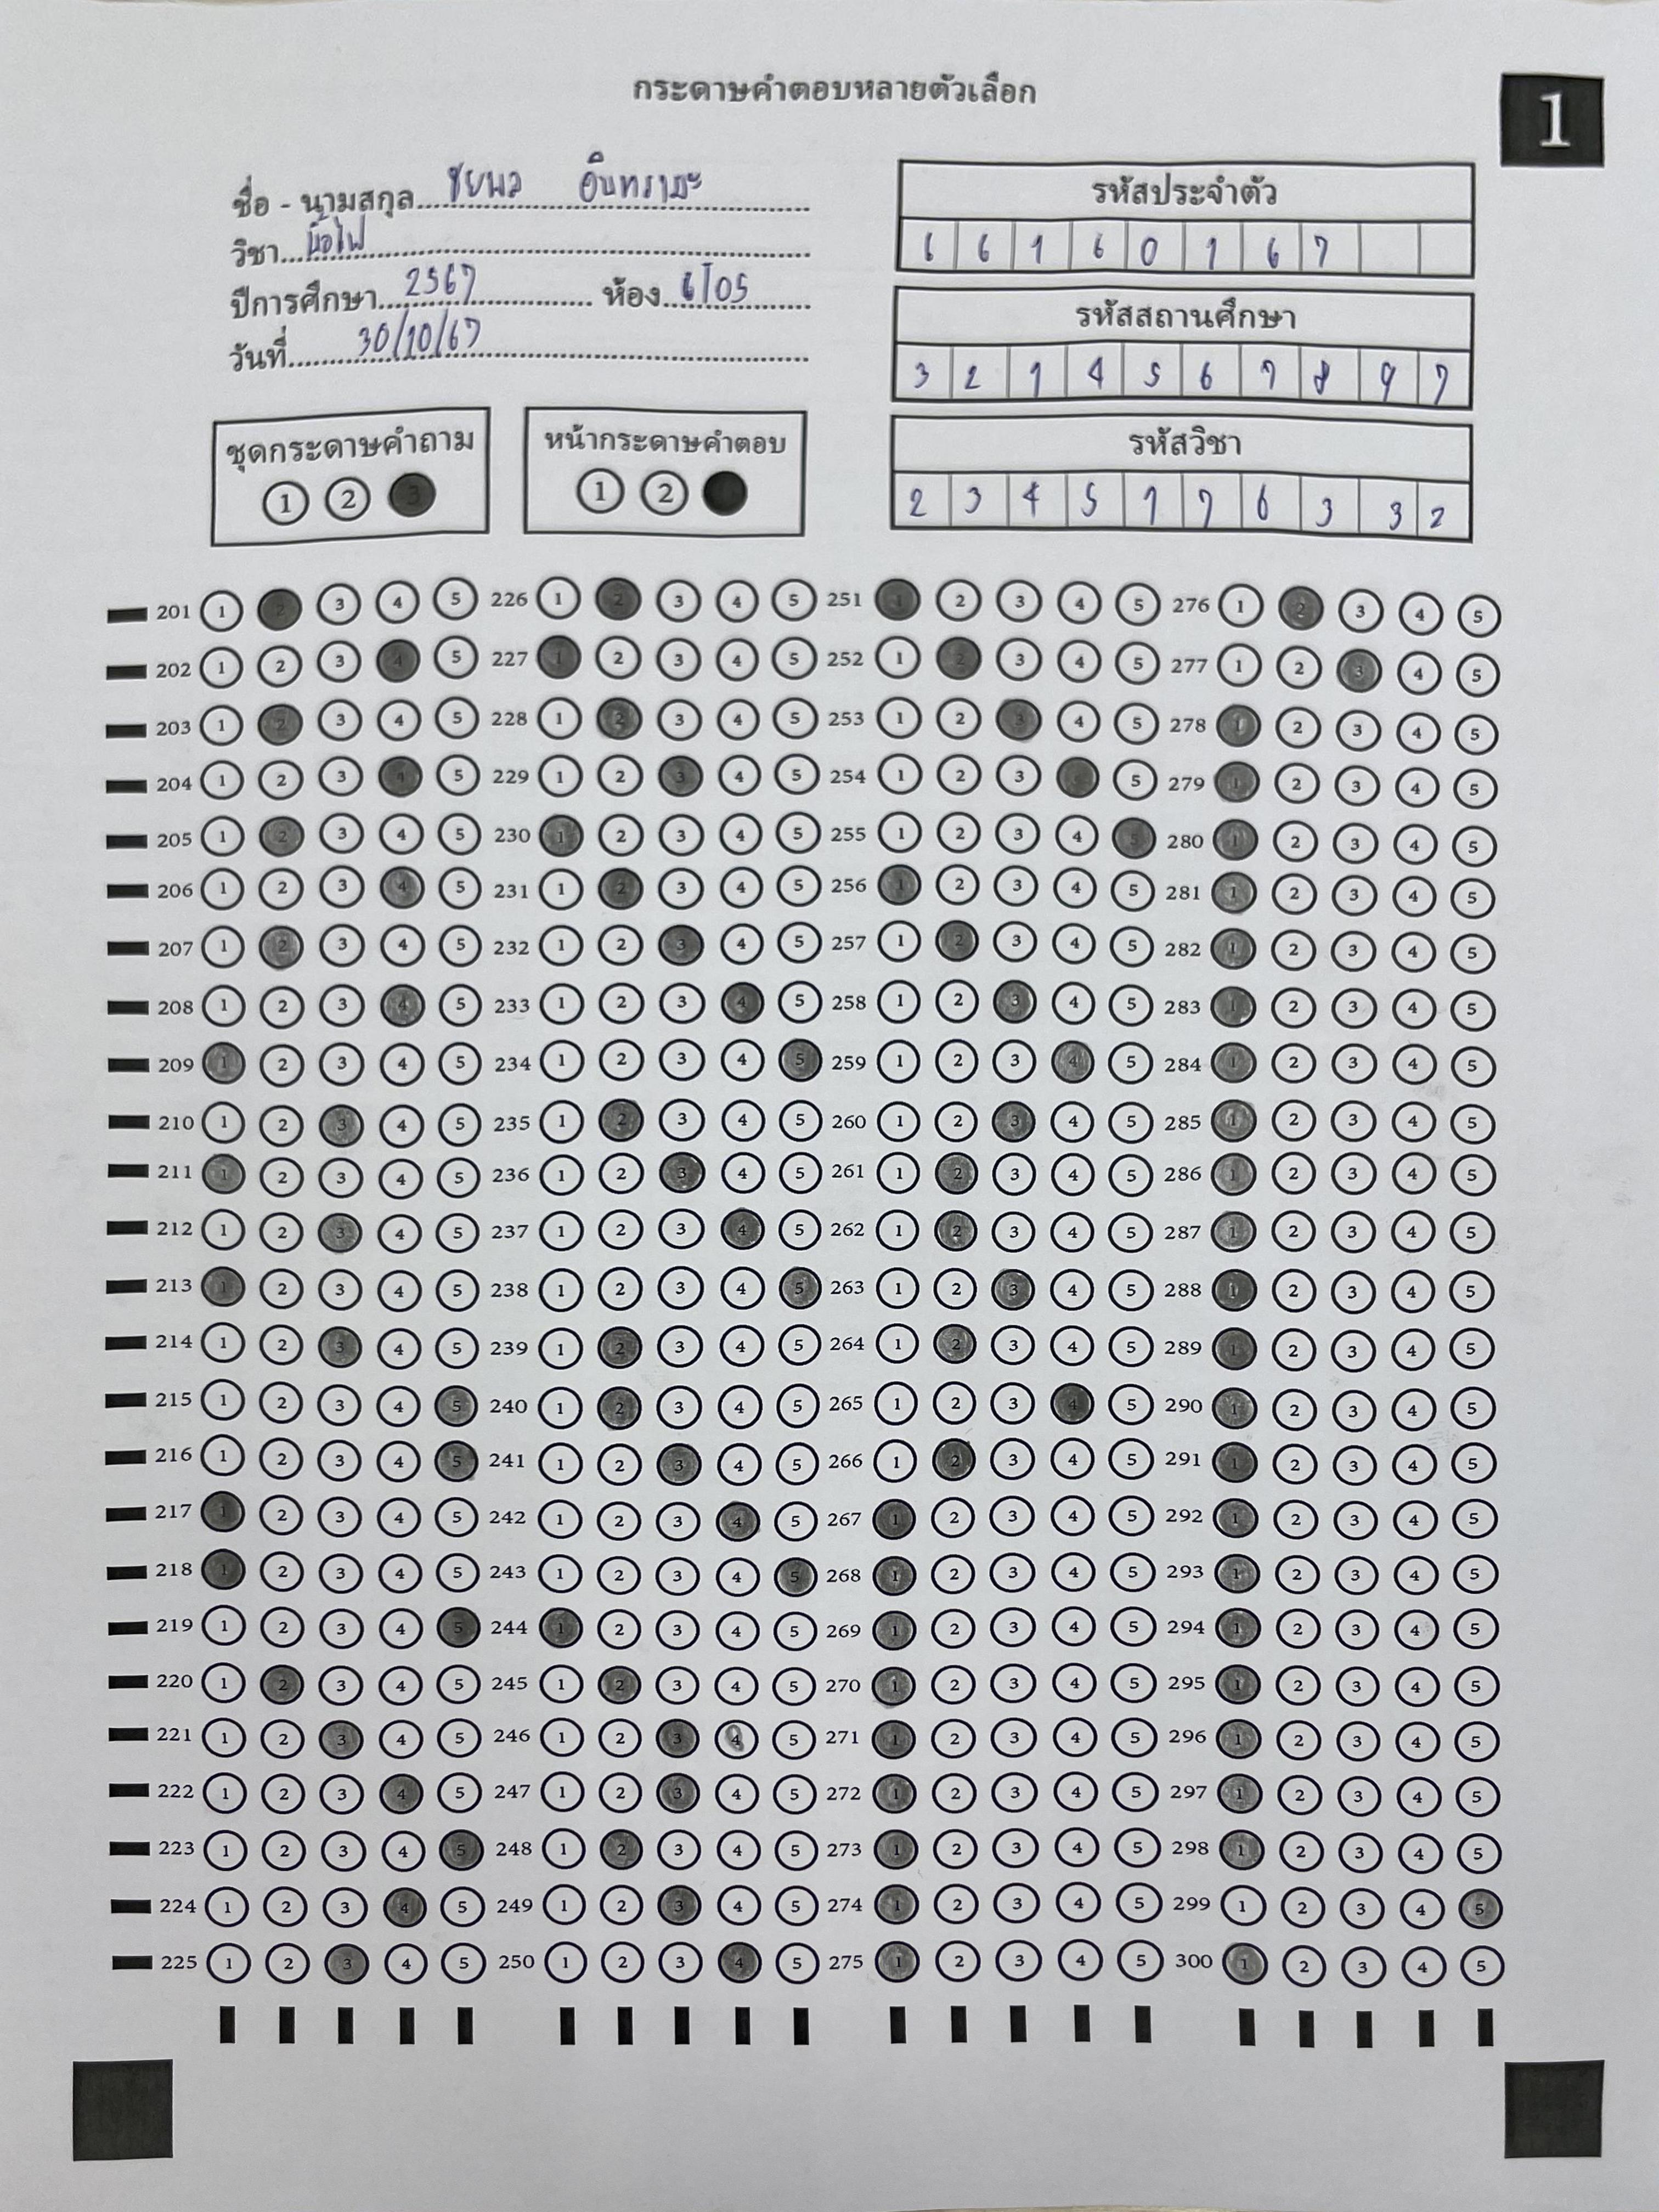 กระดาษคำตอบหลายตัวเลือก
1
ชื่อ - นามสกุล ชัยพล อินทรามะ
วิชา
ปีการศึกษา 2567 ห้อง 6/05
วันที่ 30/10/67
รหัสประจำตัว
6 6 1 6 0 1 6 7
รหัสสถานศึกษา
3 2 1 4 5 6 7 8 9 7
รหัสวิชา
2 3 4 5 1 7 6 3 3 2
ชุดกระดาษคำถาม
1 2 3
หน้ากระดาษคำตอบ
1 2
201 1 2 3 4 5 226 1 2 3 4 5 251 1 2 3 4 5 276 1 2 3 4 5
202 1 2 3 4 5 227 1 2 3 4 5 252 1 2 3 4 5 277 1 2 3 4 5
203 1 2 3 4 5 228 1 2 3 4 5 253 1 2 3 4 5 278 1 2 3 4 5
204 1 2 3 4 5 229 1 2 3 4 5 254 1 2 3 4 5 279 1 2 3 4 5
205 1 2 3 4 5 230 1 2 3 4 5 255 1 2 3 4 5 280 1 2 3 4 5
206 1 2 3 4 5 231 1 2 3 4 5 256 1 2 3 4 5 281 1 2 3 4 5
207 1 2 3 4 5 232 1 2 3 4 5 257 1 2 3 4 5 282 1 2 3 4 5
208 1 2 3 4 5 233 1 2 3 4 5 258 1 2 3 4 5 283 1 2 3 4 5
209 1 2 3 4 5 234 1 2 3 4 5 259 1 2 3 4 5 284 1 2 3 4 5
210 1 2 3 4 5 235 1 2 3 4 5 260 1 2 3 4 5 285 1 2 3 4 5
211 1 2 3 4 5 236 1 2 3 4 5 261 1 2 3 4 5 286 1 2 3 4 5
212 1 2 3 4 5 237 1 2 3 4 5 262 1 2 3 4 5 287 1 2 3 4 5
213 1 2 3 4 5 238 1 2 3 4 5 263 1 2 3 4 5 288 1 2 3 4 5
214 1 2 3 4 5 239 1 2 3 4 5 264 1 2 3 4 5 289 1 2 3 4 5
215 1 2 3 4 5 240 1 2 3 4 5 265 1 2 3 4 5 290 1 2 3 4 5
216 1 2 3 4 5 241 1 2 3 4 5 266 1 2 3 4 5 291 1 2 3 4 5
217 1 2 3 4 5 242 1 2 3 4 5 267 1 2 3 4 5 292 1 2 3 4 5
218 1 2 3 4 5 243 1 2 3 4 5 268 1 2 3 4 5 293 1 2 3 4 5
219 1 2 3 4 5 244 1 2 3 4 5 269 1 2 3 4 5 294 1 2 3 4 5
220 1 2 3 4 5 245 1 2 3 4 5 270 1 2 3 4 5 295 1 2 3 4 5
221 1 2 3 4 5 246 1 2 3 4 5 271 1 2 3 4 5 296 1 2 3 4 5
222 1 2 3 4 5 247 1 2 3 4 5 272 1 2 3 4 5 297 1 2 3 4 5
223 1 2 3 4 5 248 1 2 3 4 5 273 1 2 3 4 5 298 1 2 3 4 5
224 1 2 3 4 5 249 1 2 3 4 5 274 1 2 3 4 5 299 1 2 3 4 5
225 1 2 3 4 5 250 1 2 3 4 5 275 1 2 3 4 5 300 1 2 3 4 5